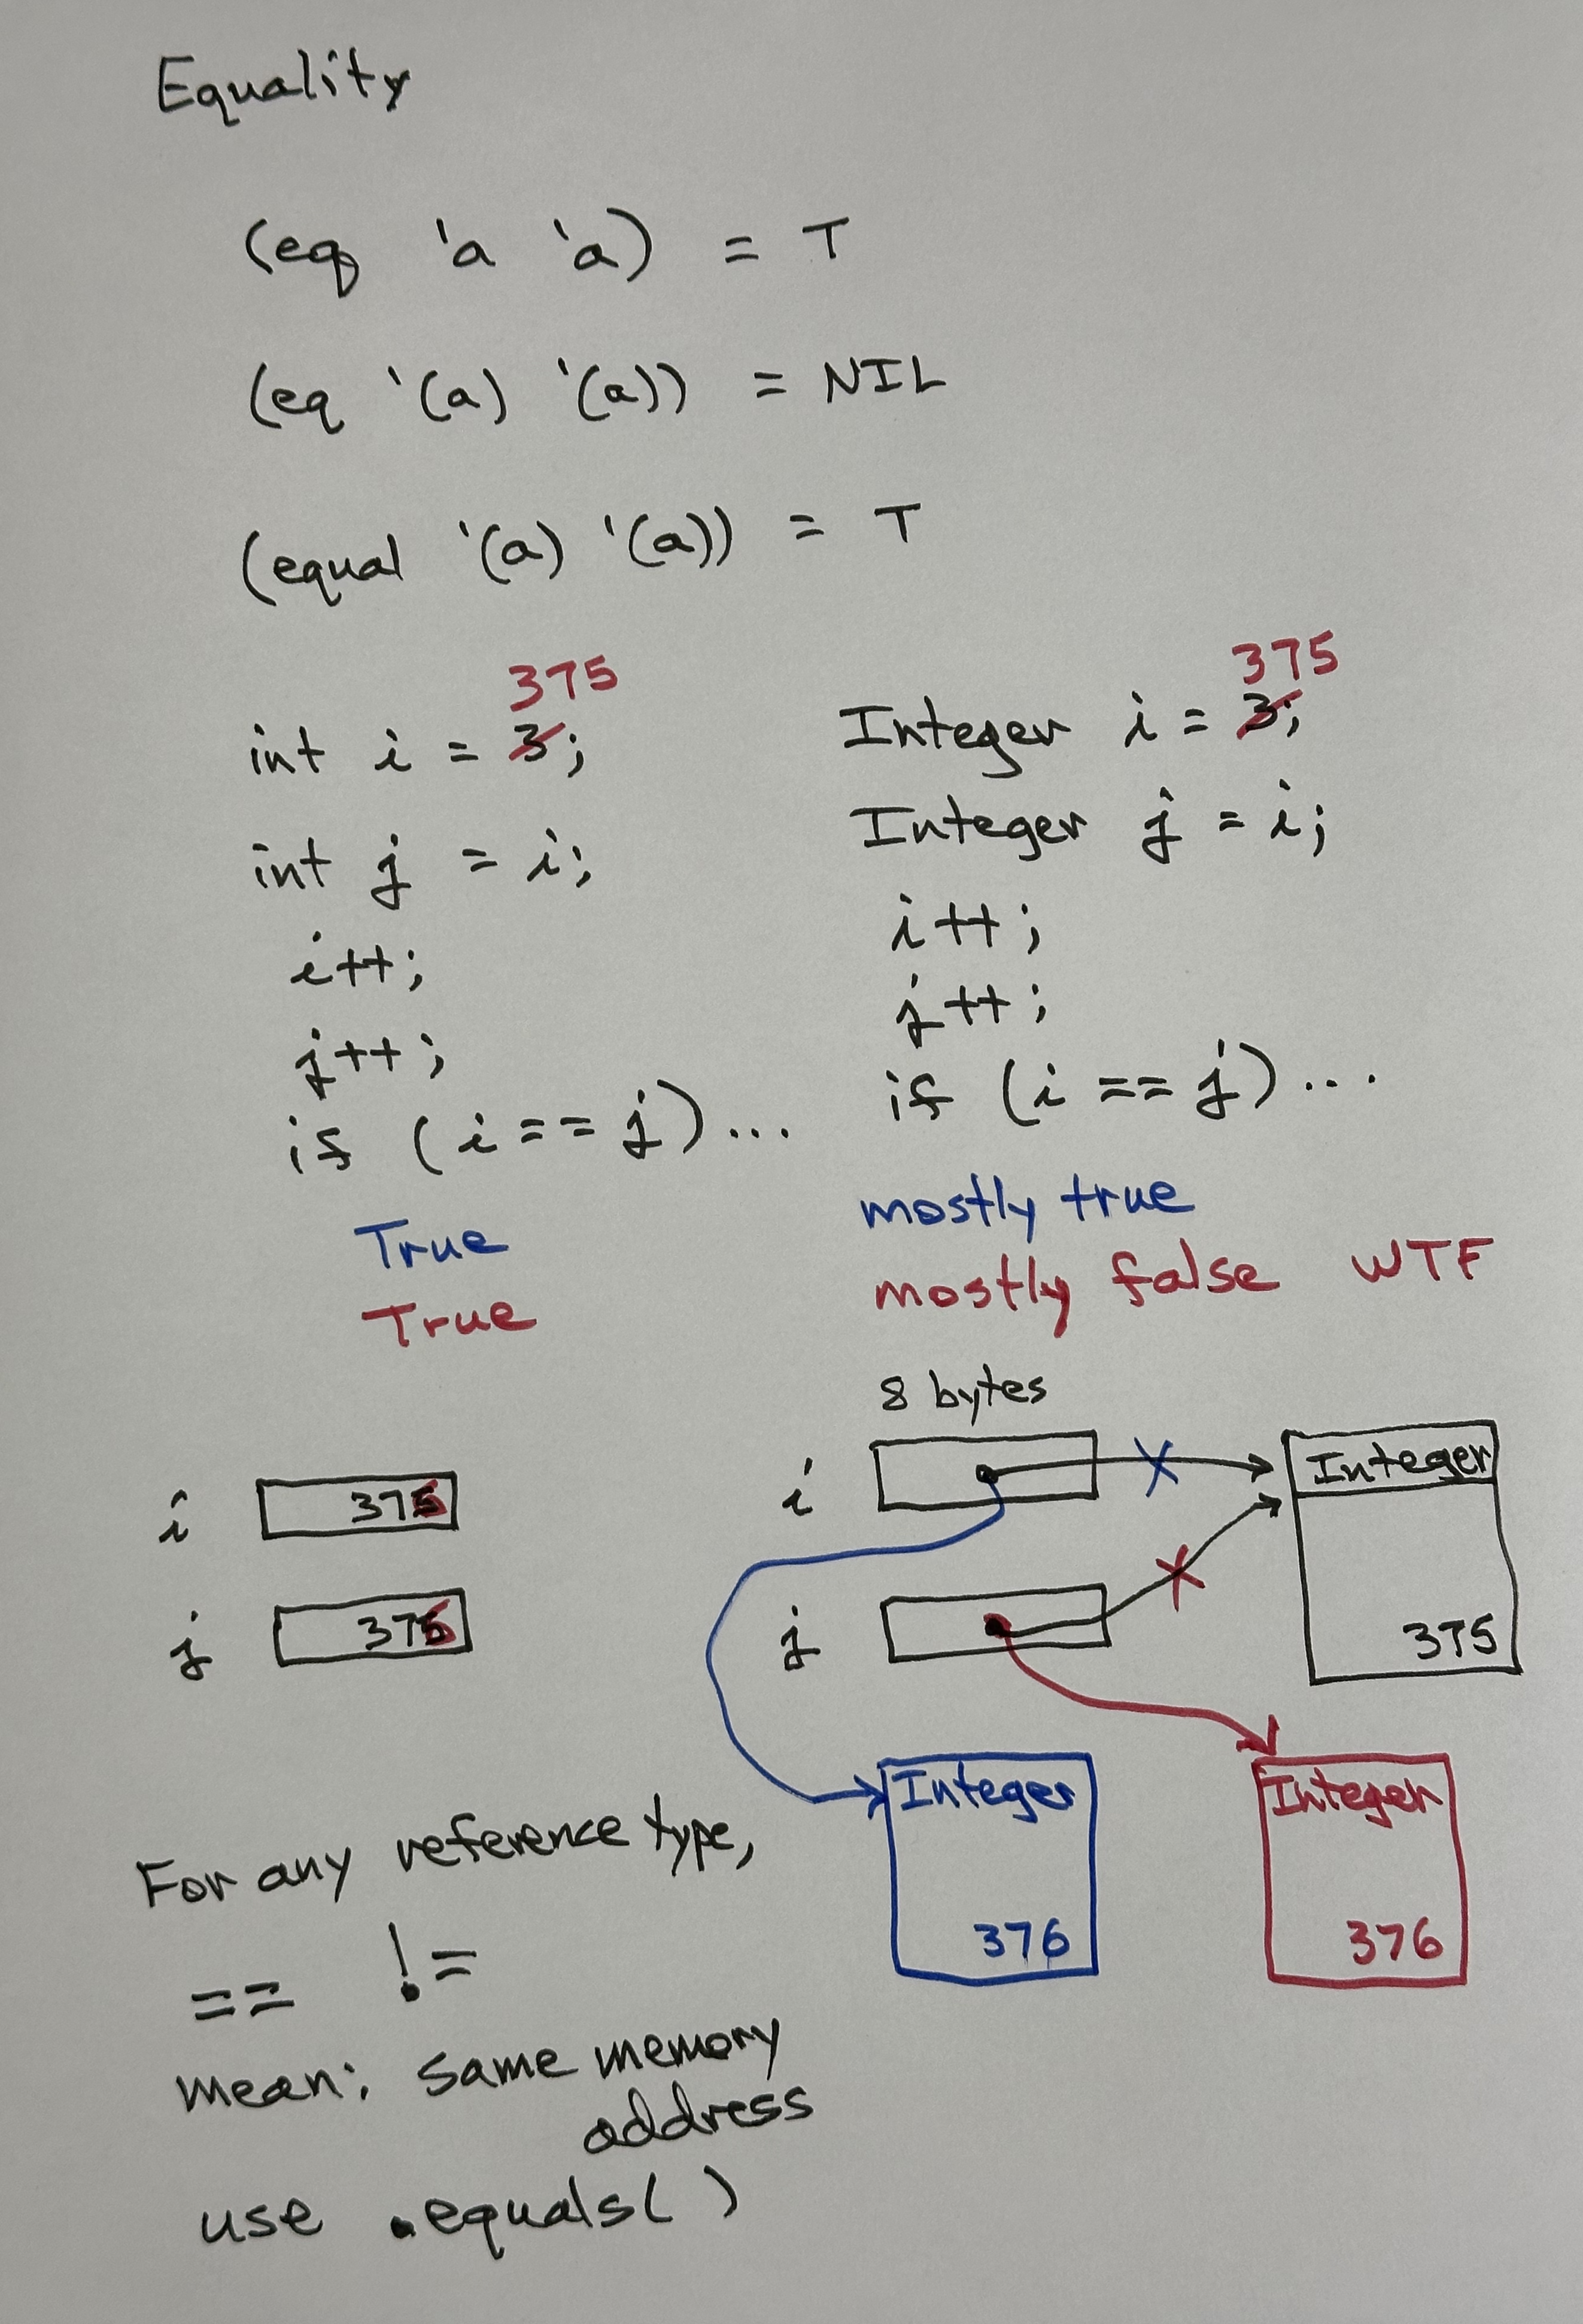 Equality
(eq 'a 'a) = T
(eq '(a) '(a)) = NIL
(equal '(a) '(a)) = T
375
int i = 3;
int j = i;
i++;
j++;
if (i == j)...
True
True
375
Integer i = 3;
Integer j = i;
i++;
j++;
if (i == j)...
mostly true
mostly false WTF
i 376
j 376
8 bytes
i
j
Integer
375
Integer
376
Integer
376
For any reference type,
== !=
mean: same memory
address
use .equals( )